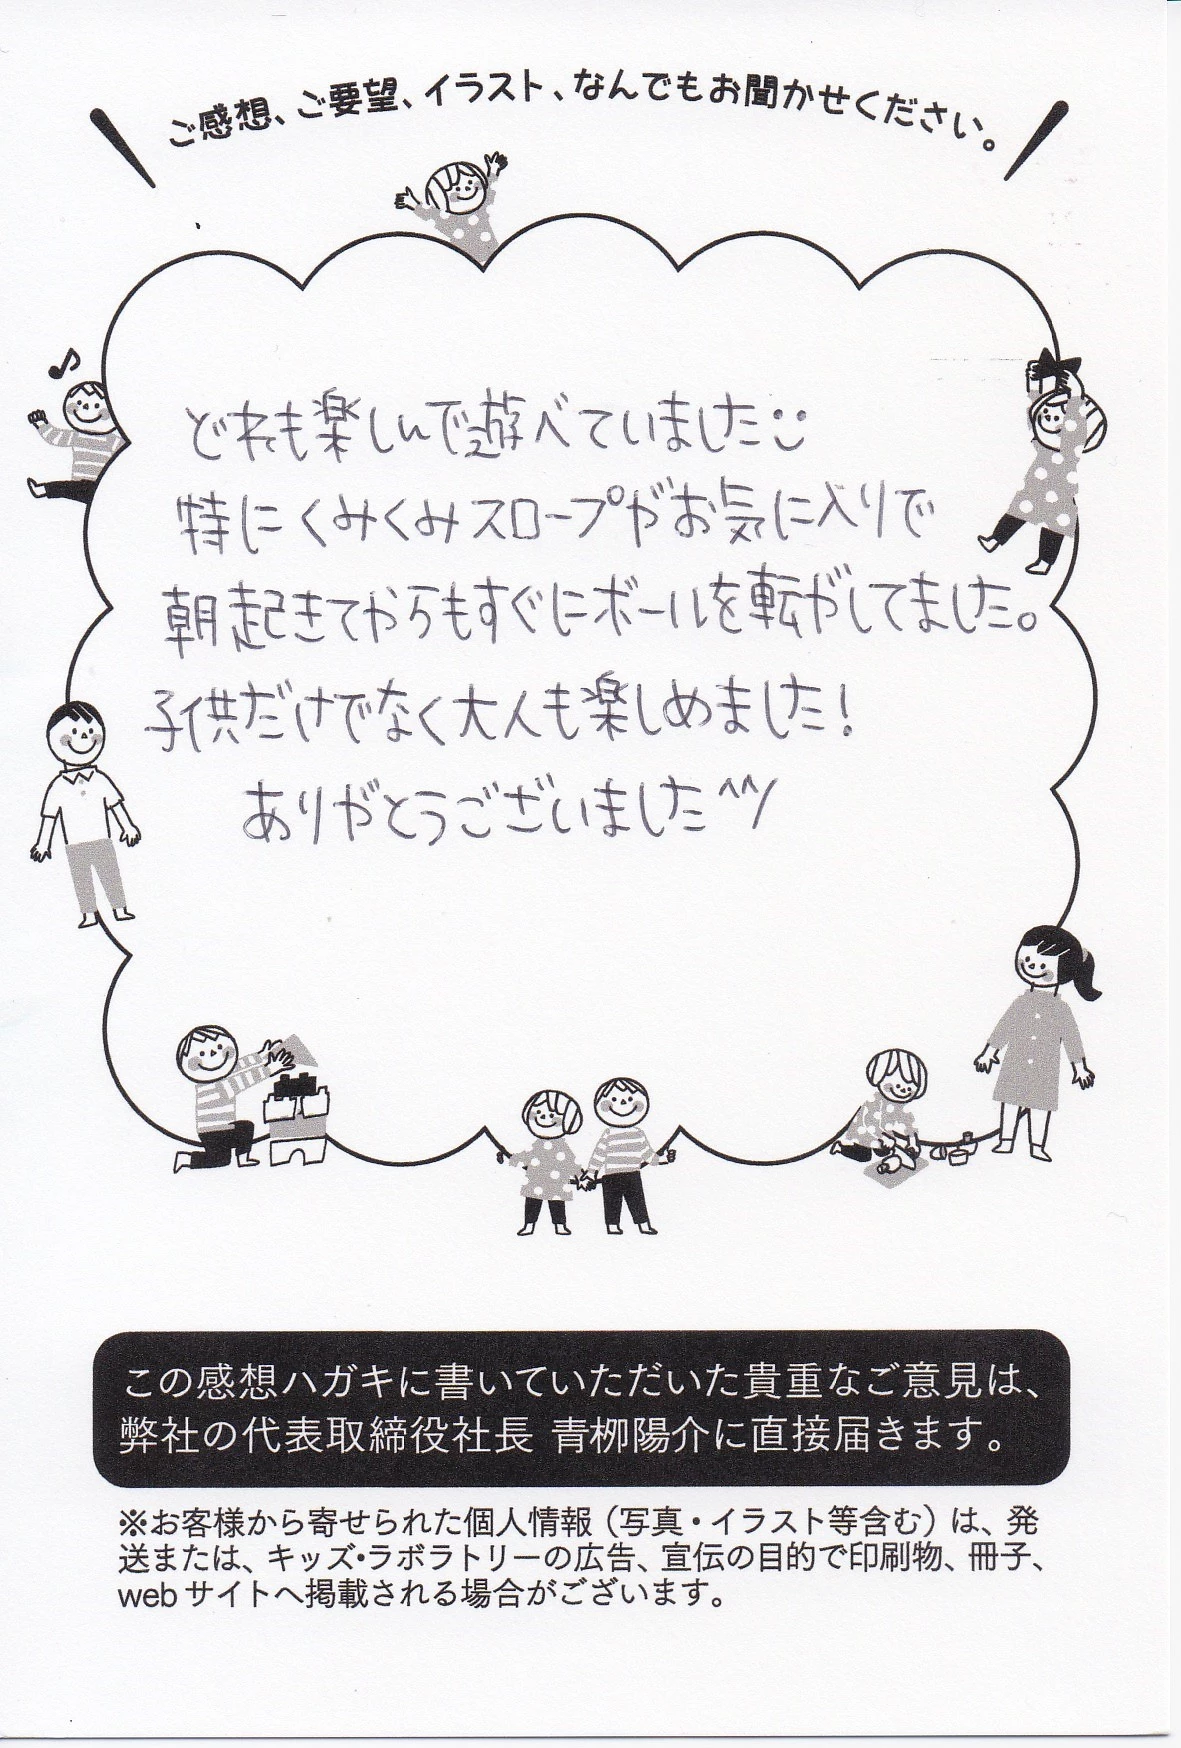 ご感想、ご要望、イラスト、なんでもお聞かせください。
どれも楽しんで遊べていました
特にくみくみスロープがお気に入りで
朝起きてからもすぐにボールを転がしてました。
子供だけでなく大人も楽しめました!
ありがとうございました^^ツ
この感想ハガキに書いていただいた貴重なご意見は、
弊社の代表取締役社長 青栁陽介に直接届きます。
※お客様から寄せられた個人情報(写真・イラスト等含む)は、発
送または、キッズ・ラボラトリーの広告、宣伝の目的で印刷物、冊子、
webサイトへ掲載される場合がございます。